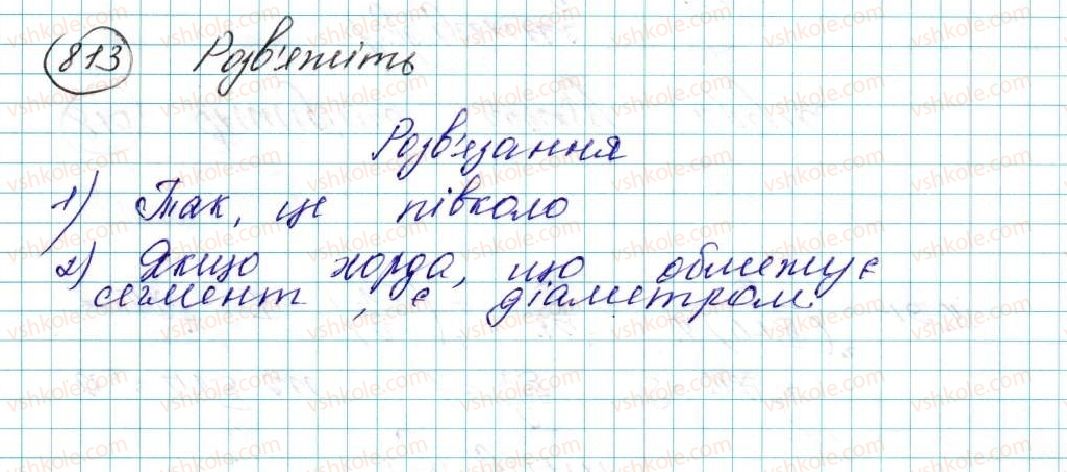 813 Розв'яжіть
Розв'язання
1) Так, це півколо
2) Якщо хорда, що обмежує
сегмент, є діаметром.